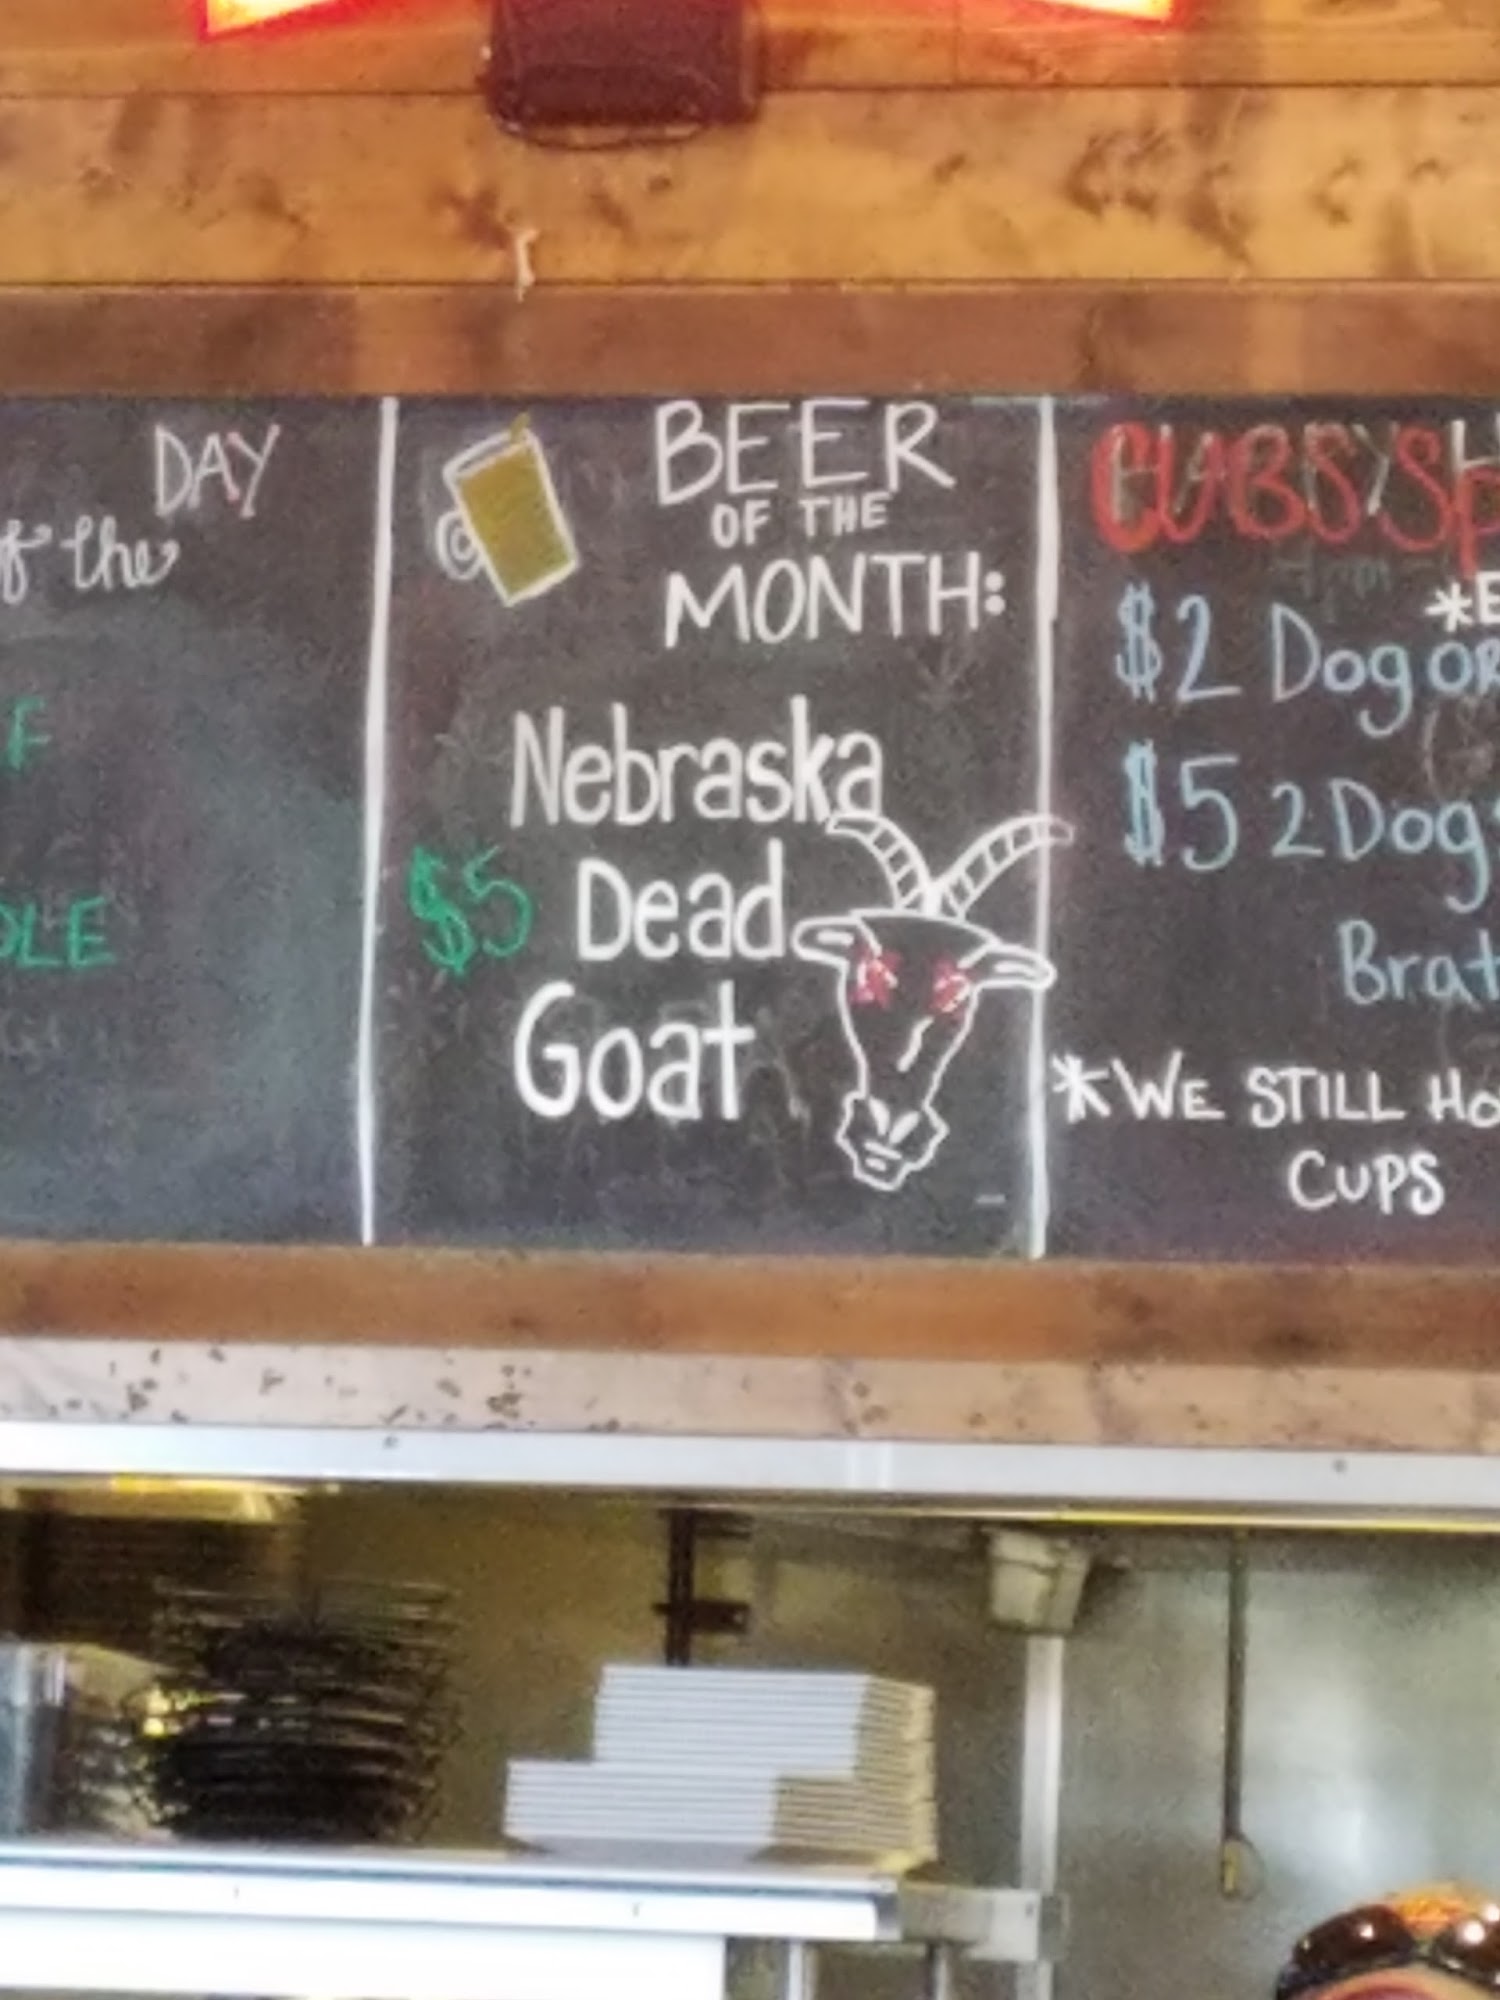 DAY
of the
F
DLE
BEER
OF THE
MONTH:
Nebraska
$5 Dead
Goat
CUBS
*E
$2 Dog OR
$5 2 Dogs
Brat
*WE STILL HO
CUPS